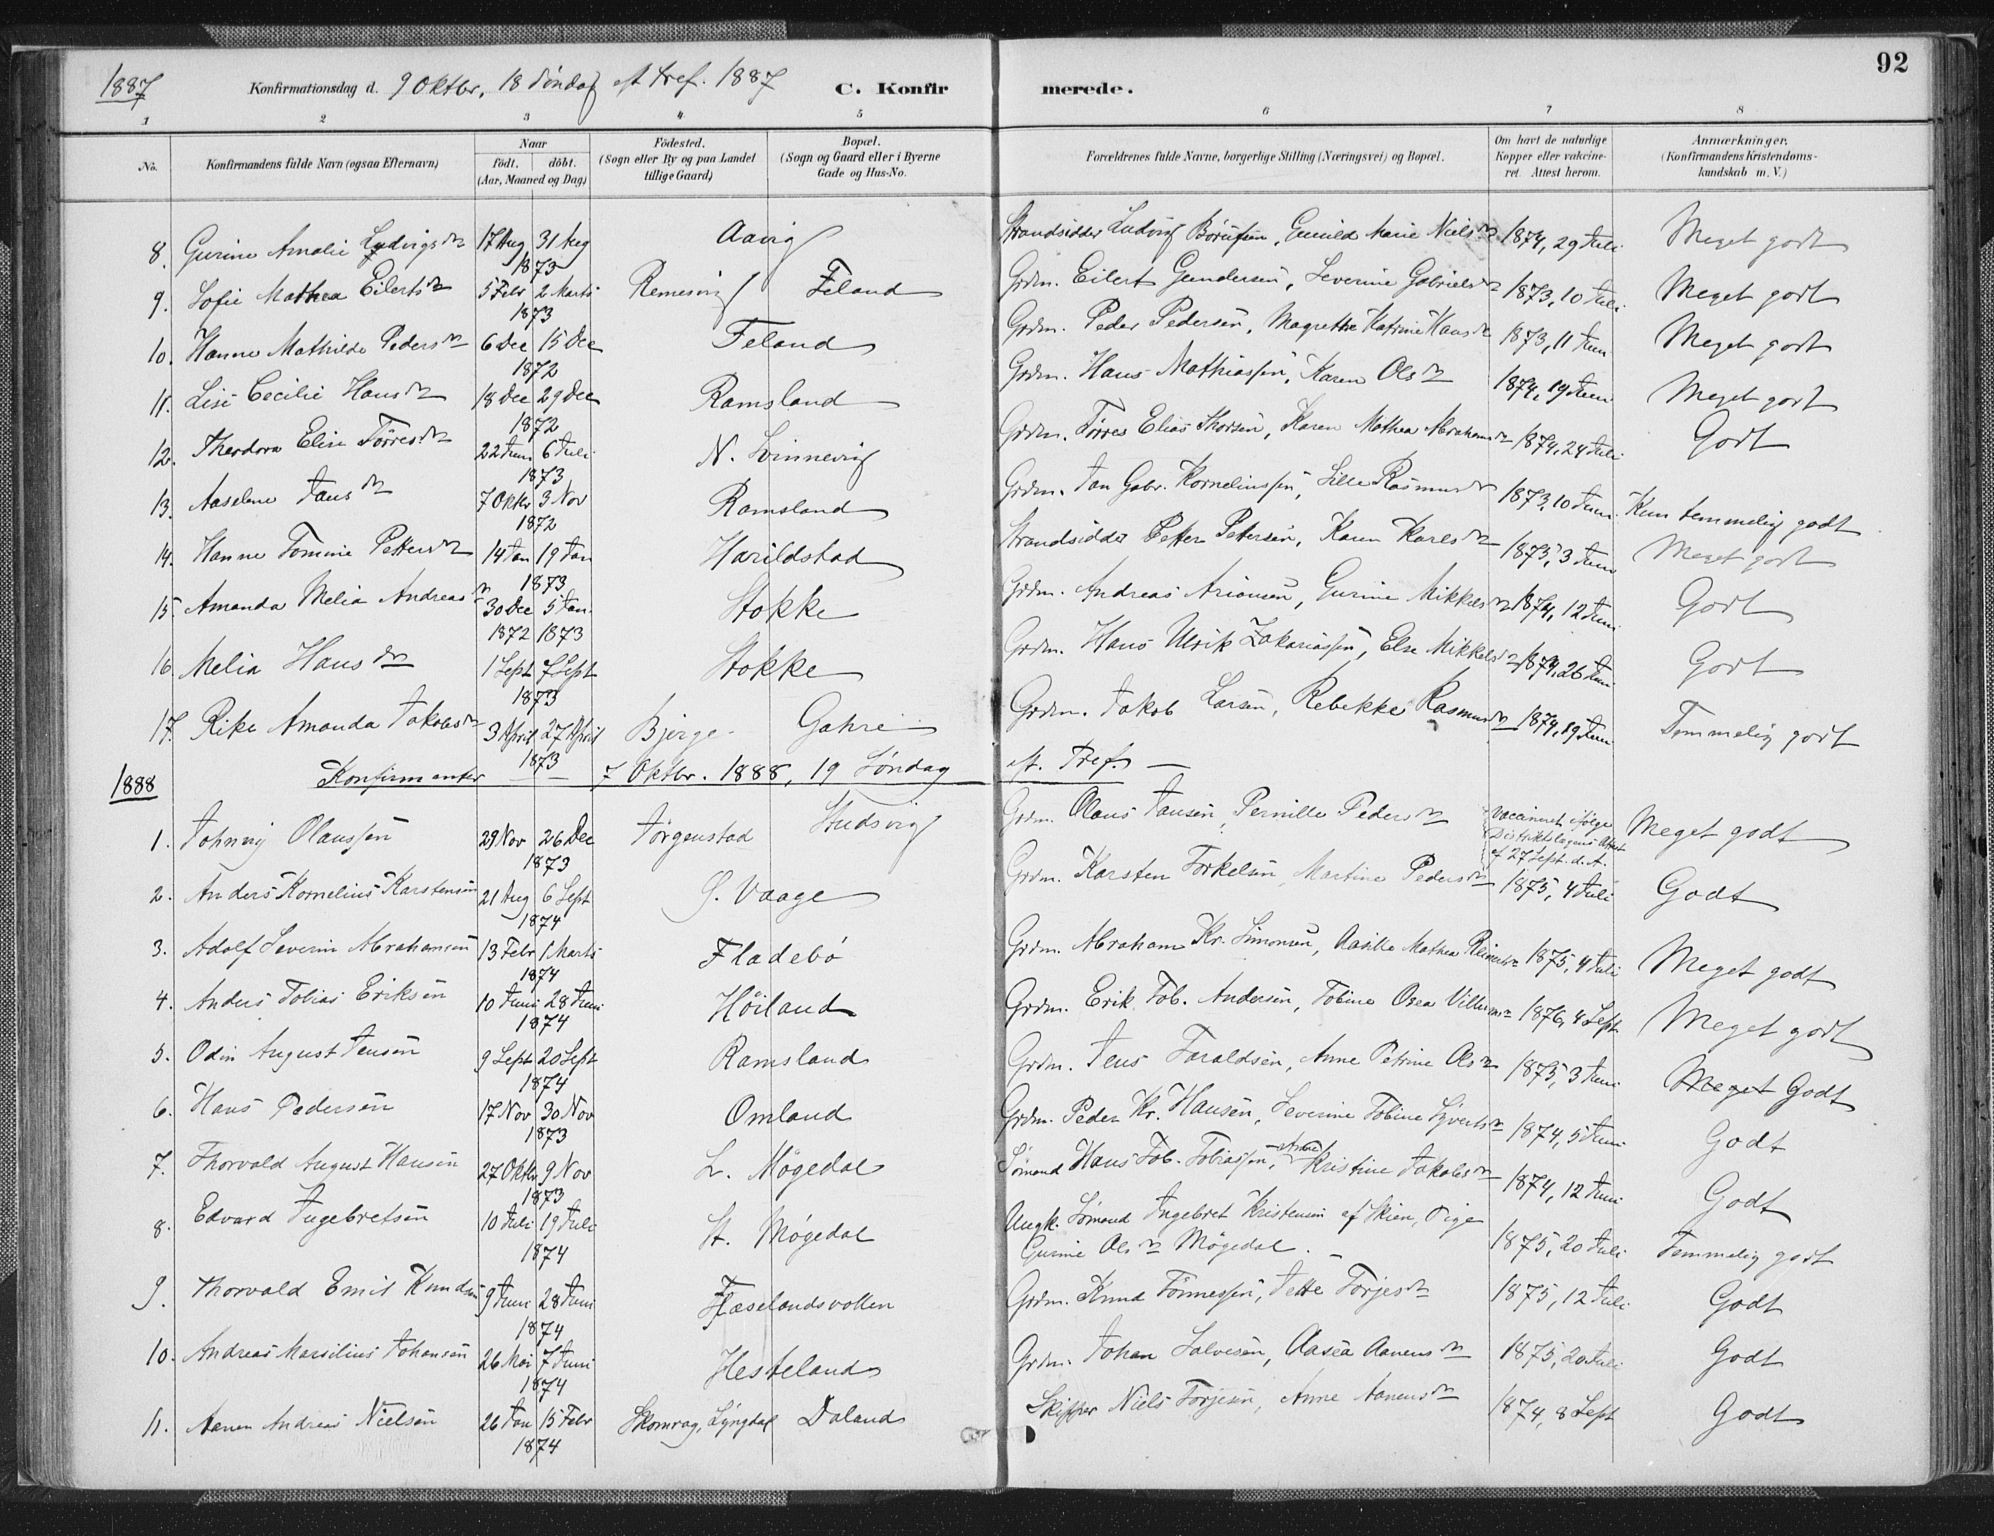 92
1887 Konfirmationsdag d. 9 Oktbr. 18 Söndag eft Tref. 1887 C. Konfirmerede.
1 2 3 4 5 6 7 8
No. Konfirmandens fulde Navn (ogsaa Efternavn) Naar födt. döbt. (Aar, Maaned og Dag) Födested. (Sogn eller By og paa Landet tillige Gaard) Bopæl. (Sogn og Gaard eller i Byerne Gade og Hus-No. Forældrenes fulde Navne, borgerlige Stilling (Næringsvei) og Bopæl. Om havt de naturlige Kopper eller vakcineret. Attest herom. Anmærkninger. (Konfirmandens Kristendomskundskab m. V.)
8. Gurine Amalie Ludvigsdr 17 Aug 31 Aug 1873 Aavig Strandsidder Ludvig Börufsen, Gunild Marie Nielsdr 1874, 29 Juli Meget godt
9. Sofie Mathea Eilertsdr 5 Febr 2 Marts 1873 Remesvig Feland Grdm. Eilert Gundersen, Severine Gabrielsdr 1873, 10 Juli Meget godt
10. Hanne Mathilde Pedersdr 6 Dec 15 Dec 1872 Feland Grdm. Peder Pedersen, Magrethe Katrine Hansdr 1873, 11 Juni Meget godt
11. Lise Cecilie Hansdr 18 Dec 29 Dec 1872 Ramsland Grdm. Hans Mathiassen, Karen Olsdr 1874, 19 Juni Meget godt
12. Theodora Elise Törresdr 22 Juni 6 Juli 1873 N. Svinnevig Grdm. Törres Elias Thorsen, Karen Mathea Abrahamsdr 1874, 24 Juli Godt
13. Aaselene Jansdr 7 Oktbr 3 Nov 1872 Ramsland Grdm. Jan Gabr. Korneliussen, Sille Rasmusdr 1873, 10 Juni Kun temmelig godt
14. Hanne Tomine Pettersdr 14 Jan 19 Jan 1873 Harildstad Strandsidder Petter Petersen, Karen Karlsdr 1875, 3 Juni Meget godt
15. Amanda Melia Andreasdr 30 Dec 5 Jan. 1872 1873 Stokke Grdm. Andreas Arionsen, Gurine Mikkelsdr 1874, 12 Juni Godt
16. Melia Hansdr 1 Sept 7 Sept 1873 Stokke Grdm. Hans Ulrik Zakariassen, Else Mikkelsdr 1874, 26 Juni Godt
17. Rike Amanda Jakobsdr 3 April 27 April 1873 Bjerge Gahre Grdm. Jakob Larsen, Rebekke Rasmusdr 1874, 19 Juni Temmelig godt
1888 Konfirmanter 7 Oktbr. 1888, 19 Söndag eft. Tref. —
1. Johnny Olaussen 29 Nov 26 Dec 1873 Jörgenstad Studsvig Grdm. Olaus Jansen, Pernille Pedersdr Vaccineret ifölge Distriktslægens Attest af 27 Sept. d. A. Meget godt
2. Anders Kornelius Karstensen 21 Aug 6 Sept 1874 S. Vaage Grdm. Karsten Torkelsen, Martine Pedersdr 1875, 4 Juli Godt
3. Adolf Severin Abrahamsen 13 Febr 1 Marts 1874 Fladebö Grdm. Abraham Kr. Simonsen, Aasille Mathea Reinertsdr 1875, 4 Juli Meget godt
4. Anders Tobias Eriksen 10 Juni 28 Juni 1874 Höiland Grdm. Erik Tob. Andersen, Tobine Osea Villumsdr 1876, 4 Sept Meget godt
5. Odin August Jensen 9 Sept 20 Sept 1874 Ramsland Grdm. Jens Taraldsen, Anne Petrine Olsdr 1875, 3 Juni Meget Godt
6. Hans Pedersen 17 Nov 30 Nov 1873 Omland Grdm. Peder Kr. Hansen, Severine Tobine Syvertsdr 1874, 5 Juni Godt
7. Thorvald August Hansen 27 Oktbr 9 Nov 1873 L. Mögedal Sömand Hans Tob. Tobiassen, Anne Kristine Jakobsdr 1874, 12 Juni Godt
8. Edvard Ingebretsen 10 Juli 19 Juli 1874 St. Mögedal Ungk. Sömand Ingebret Kristensen af Skien, Pige Gurine Olsdr Mögedal. — 1875, 20 Juli Temmelig godt
9. Thorvald Emil Knudsen 9 Juni 28 Juni 1874 Fjæselandsvollen Grdm. Knud Tönnessen, Jette Torjesdr 1875, 12 Juli Godt
10. Andreas Marsilius Johansen 26 Mai 7 Juni 1874 Hesteland Grdm. Johan Salvesen, Aasea Aanensdr 1875, 20 Juli Godt
11. Aanen Andreas Nielsen 26 Jan 15 Febr 1874 Skomrag, Lyngdal Daland Skipper Niels Torjesen, Anne Aanensdr 1874, 8 Sept Godt